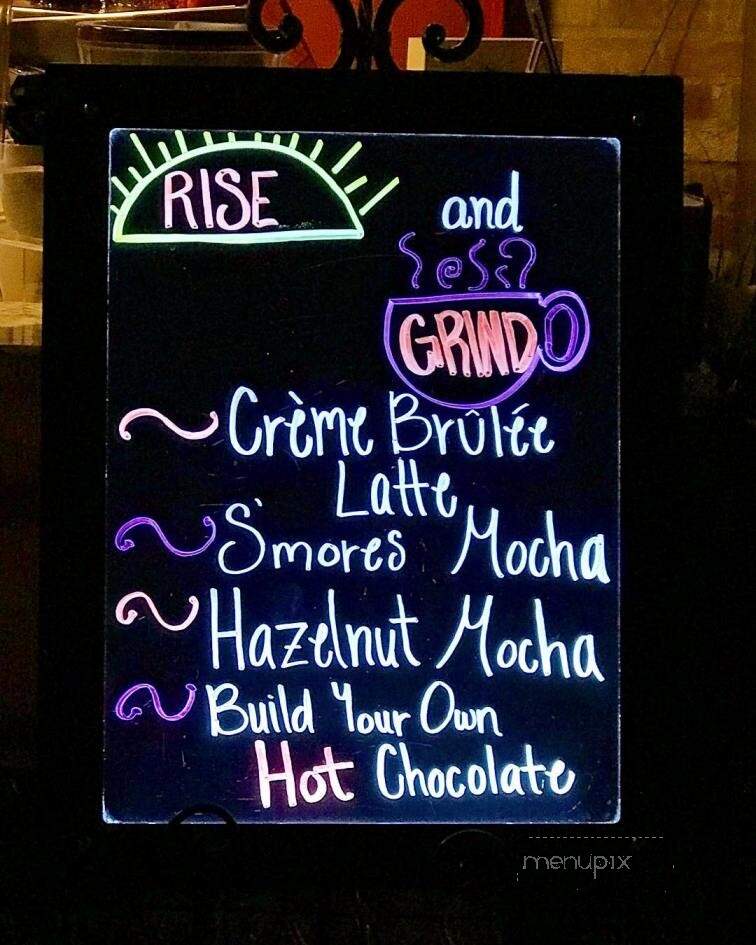 RISE
and
GRIND
Crème Brûlée
Latte
S'mores Mocha
Hazelnut Mocha
Build Your Own
Hot Chocolate
menupix